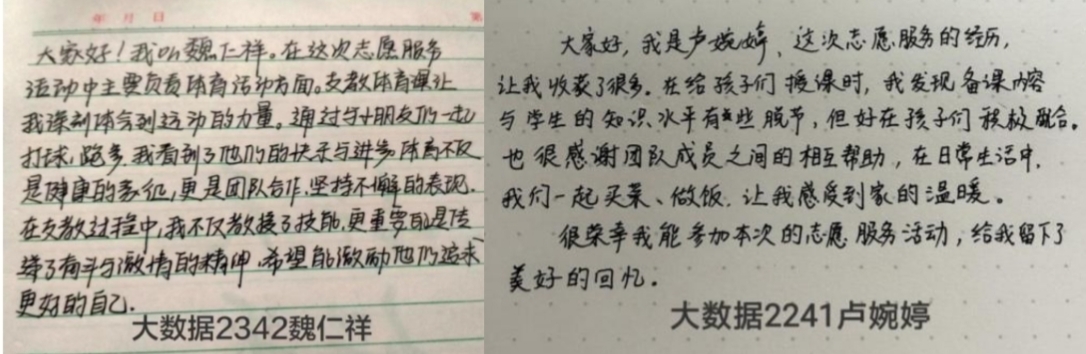 年 月 日
第
大家好！我叫魏仁祥。在这次志愿服务
活动中主要负责体育活动方面。支教体育课让
我深刻体会到运动的力量。通过与小朋友们一起
打球，跑步，我看到了他们的快乐与进步。体育不仅
是健康的象征，更是团队合作，坚持不懈的表现。
在支教过程中，我不仅教授了技能，更重要的是传
递了奋斗与激情的精神，希望能激励他们追求
更好的自己.
大数据2342魏仁祥
大家好，我是卢婉婷，这次志愿服务的经历，
让我收获了很多。在给孩子们授课时，我发现备课内容
与学生的知识水平有些脱节，但好在孩子们积极配合。
也很感谢团队成员之间的相互帮助，在日常生活中，
我们一起买菜、做饭，让我感受到家的温暖。
很荣幸我能参加本次的志愿服务活动，给我留下了
美好的回忆。
大数据2241卢婉婷